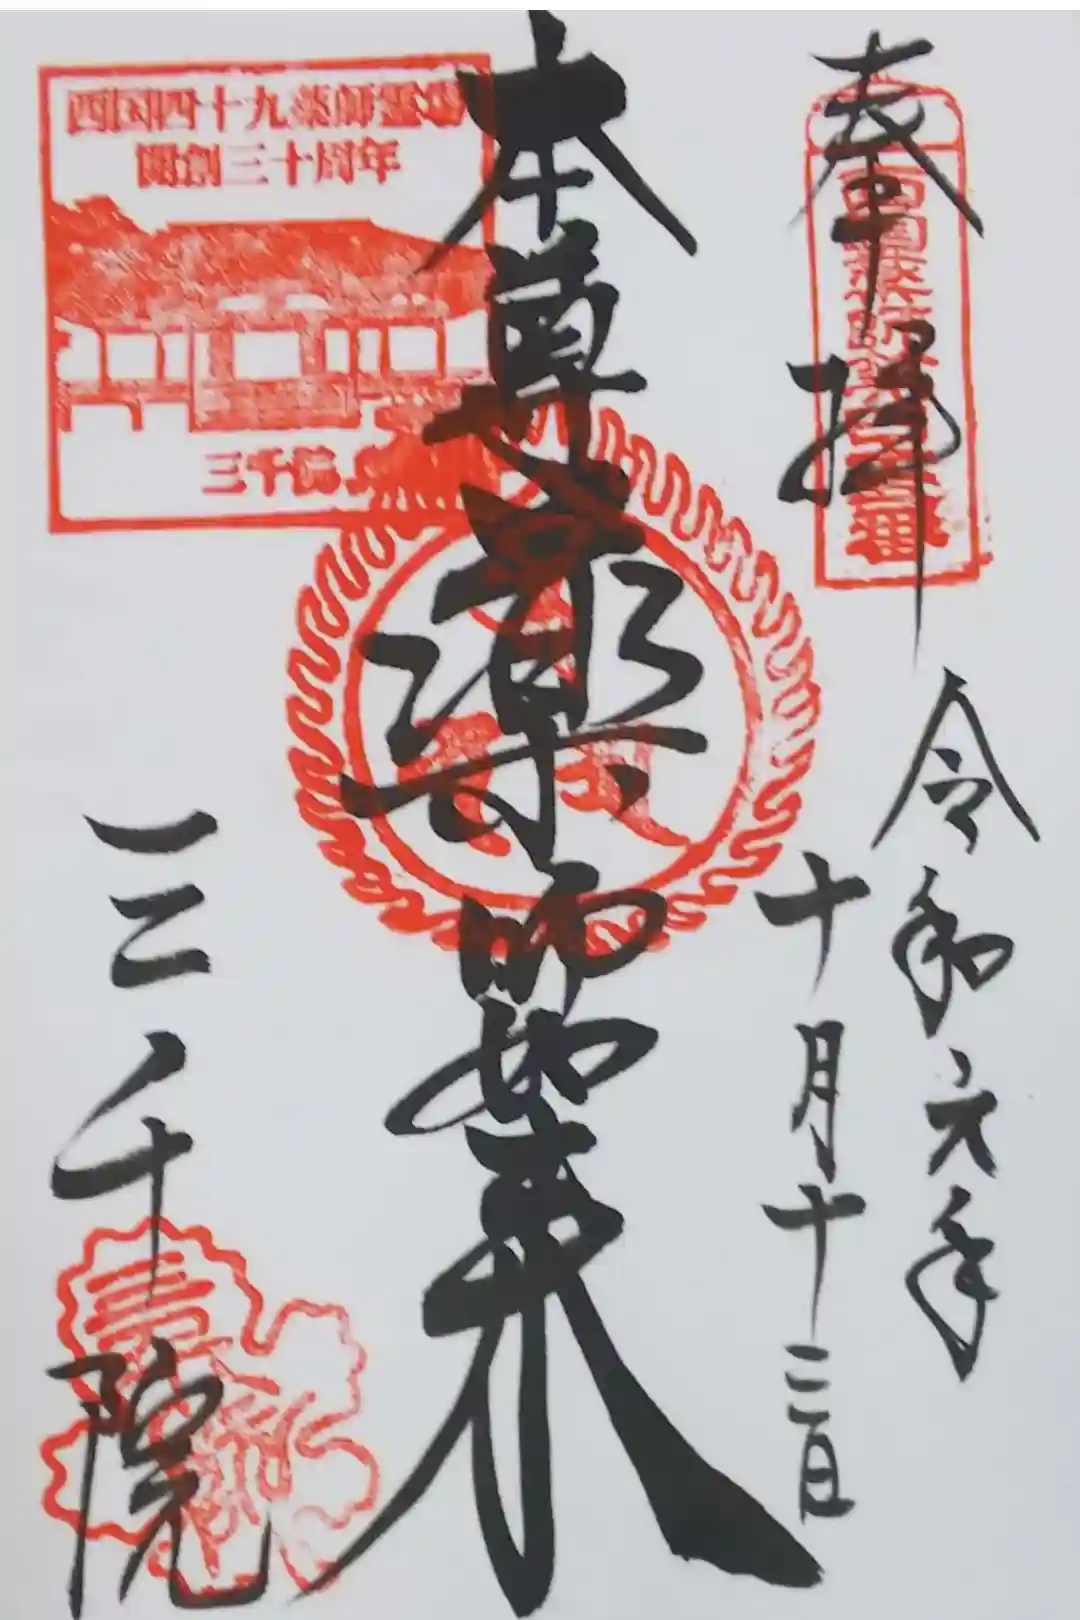 奉拝
令和元年
十月十二日
本尊薬師如来
西国四十九薬師霊場
開創三十周年
三千院
三千院